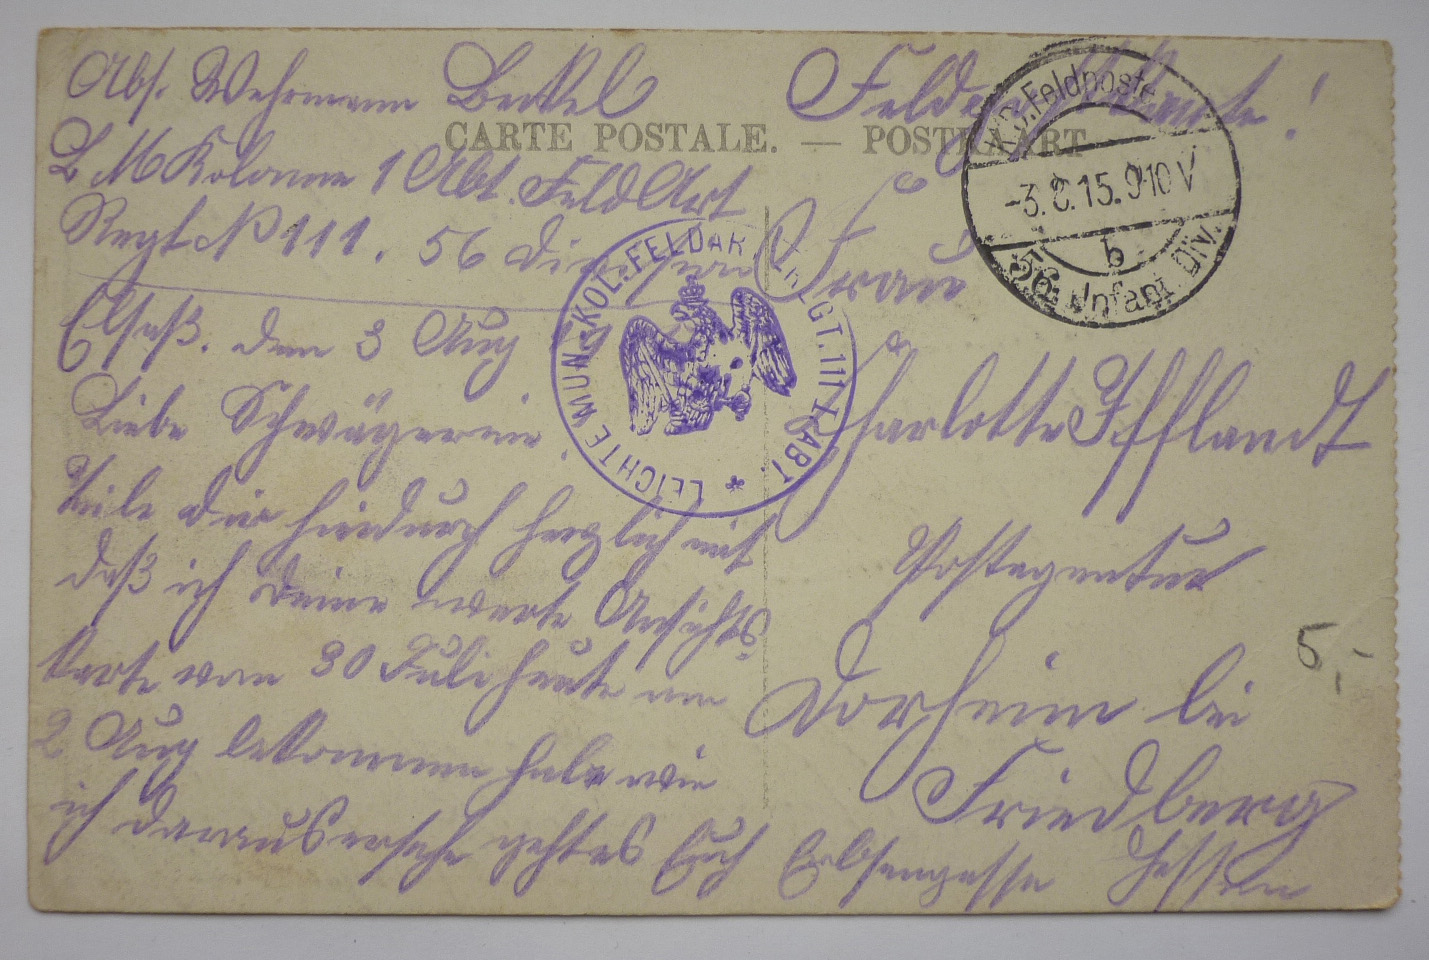 Abs. Wehrmann Beckel
L M Kolonne 1 Abt. FeldArt
Regt No 111. 56 Division
Elsaß. den 3 Aug 15
Liebe Schwägerin!
Teile dir hierdurch herzlich mit
daß ich deine werte Ansichts-
karte vom 30 Juli heute am
2 Aug bekommen habe wie
ich daraus ersehe geht es Euch
CARTE POSTALE. — POSTKAART
Feldpostkarte!
Frau
Charlotte Ifflandt
Postagentur
Dorheim bei
Friedberg
Erbsengasse Hessen
K.D. Feldpostexp.
-3.8.15. 9-10 V
b
56. Infant. Div.
LEICHTE MUN.-KOL. FELDAR.T.REGT. 111 I. ABT. *
5,-